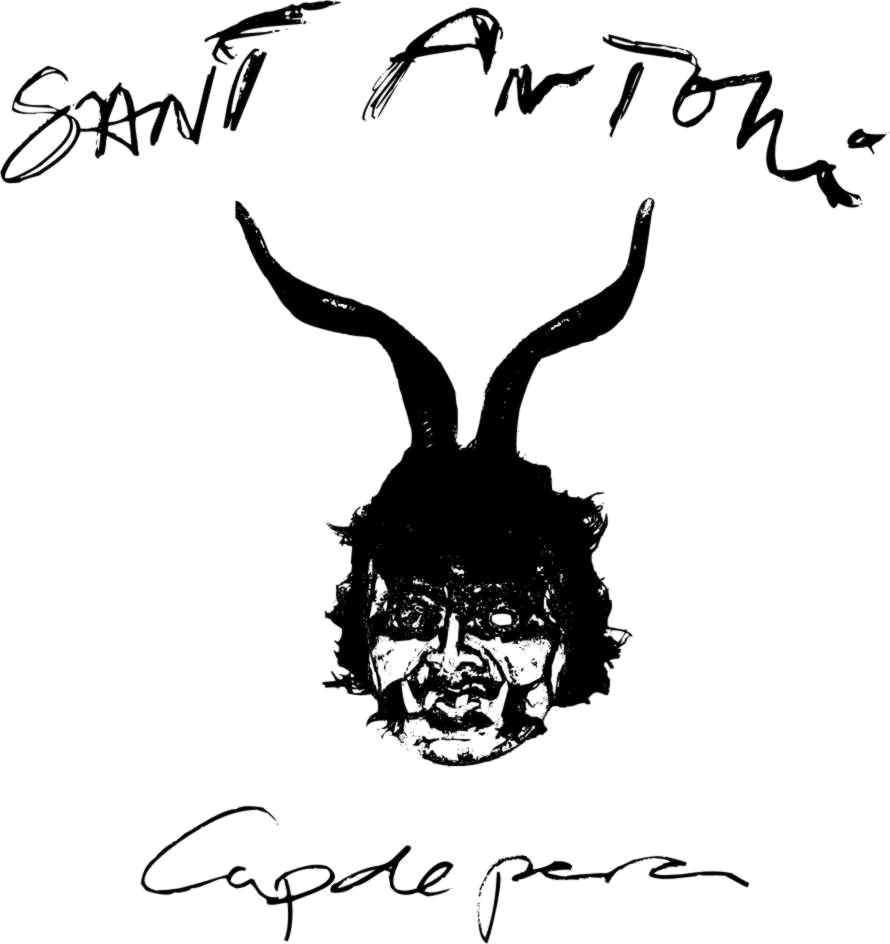 SANT ANTONi
Capdepera